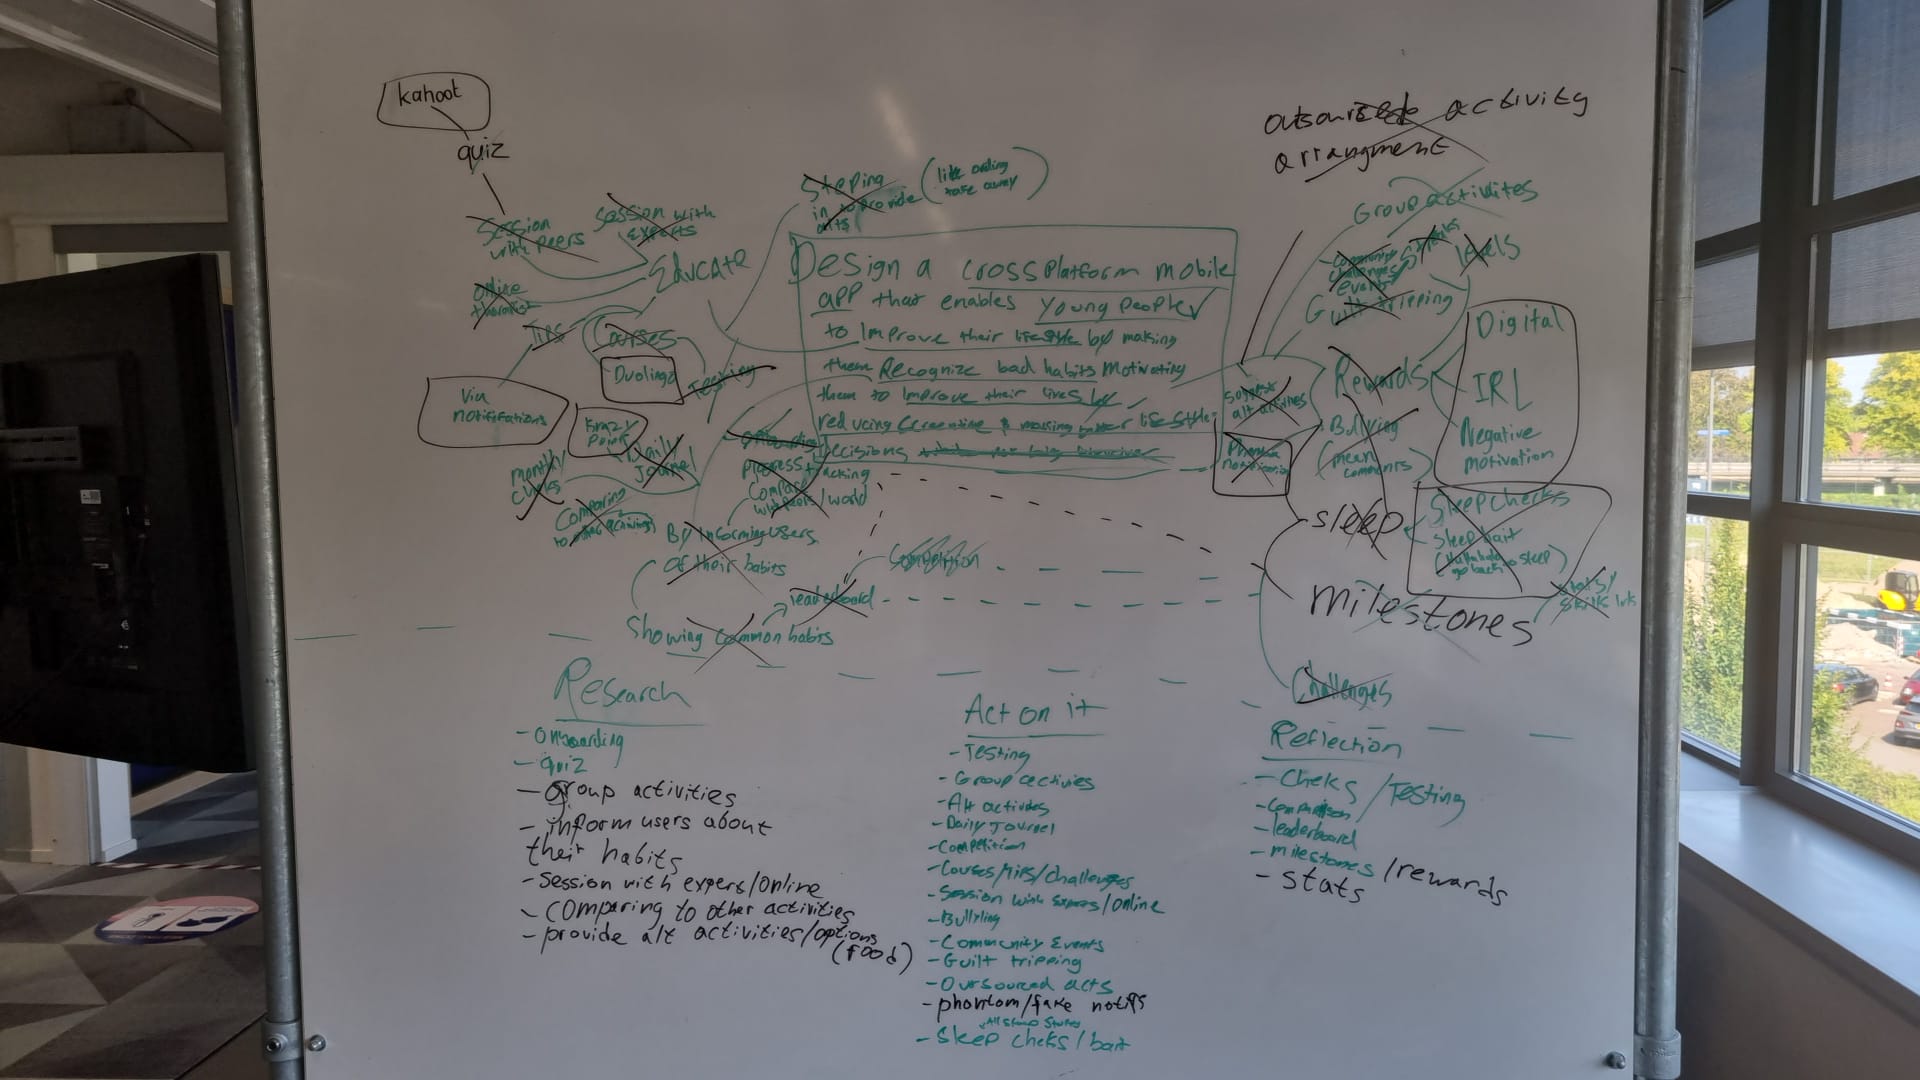 kahoot
quiz
Session
with Peers
Session with
experts
Educate
Online
Tips
Courses
Duolingo
Testing
Via
notifications
Krazy
Point
Daily
Journel
monthly
Comparing
to other activities)
Steping
in to provide
(like
take away)
Design a crossplatform mobile
app that enables young people
to improve their lifestyle by making
them Recognize bad habits motivating
them to improve their lives by
reducing screentime & making
life style
Decisions
progress tracking
Compare
/world
By Informing users
of their habits
Showing common habits
leaderboard
Competition
outsourced activity
arrangment
Group activities
challenges
events
levels
Guilt tripping
Suggest
alt activities
Phantom
notification
Rewards
Bullying
(mean
comments)
Digital
IRL
Negative
motivation
sleep
Sleep checks
sleep bait
go back to sleep)
milestones
Challenges
Research
- Onboarding
- quiz
- group activities
- inform users about
their habits
- session with expers/online
- comparing to other activities
- provide alt activities/options
(food)
Act on it
- Testing
- Group activies
- Alt activities
- Daily Journel
- Competition
- Courses/tips/challenges
- Session with expers/online
- Bullyling
- Community Events
- Guilt tripping
- Oursourced acts
- phantom/fake notifs
- sleep cheks/bait
Reflection
- Cheks /Testing
- Comparison
- leaderboard
- milestones/rewards
- stats